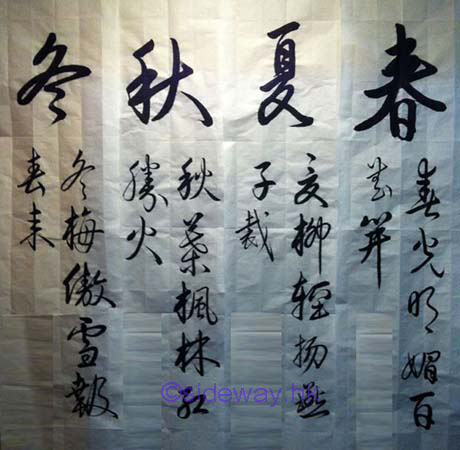 春
春光明媚百
夏
夏柳輕揚燕
子裁
秋
秋葉楓林紅
勝火
冬
冬梅傲雪報
春来
©sideway.hk